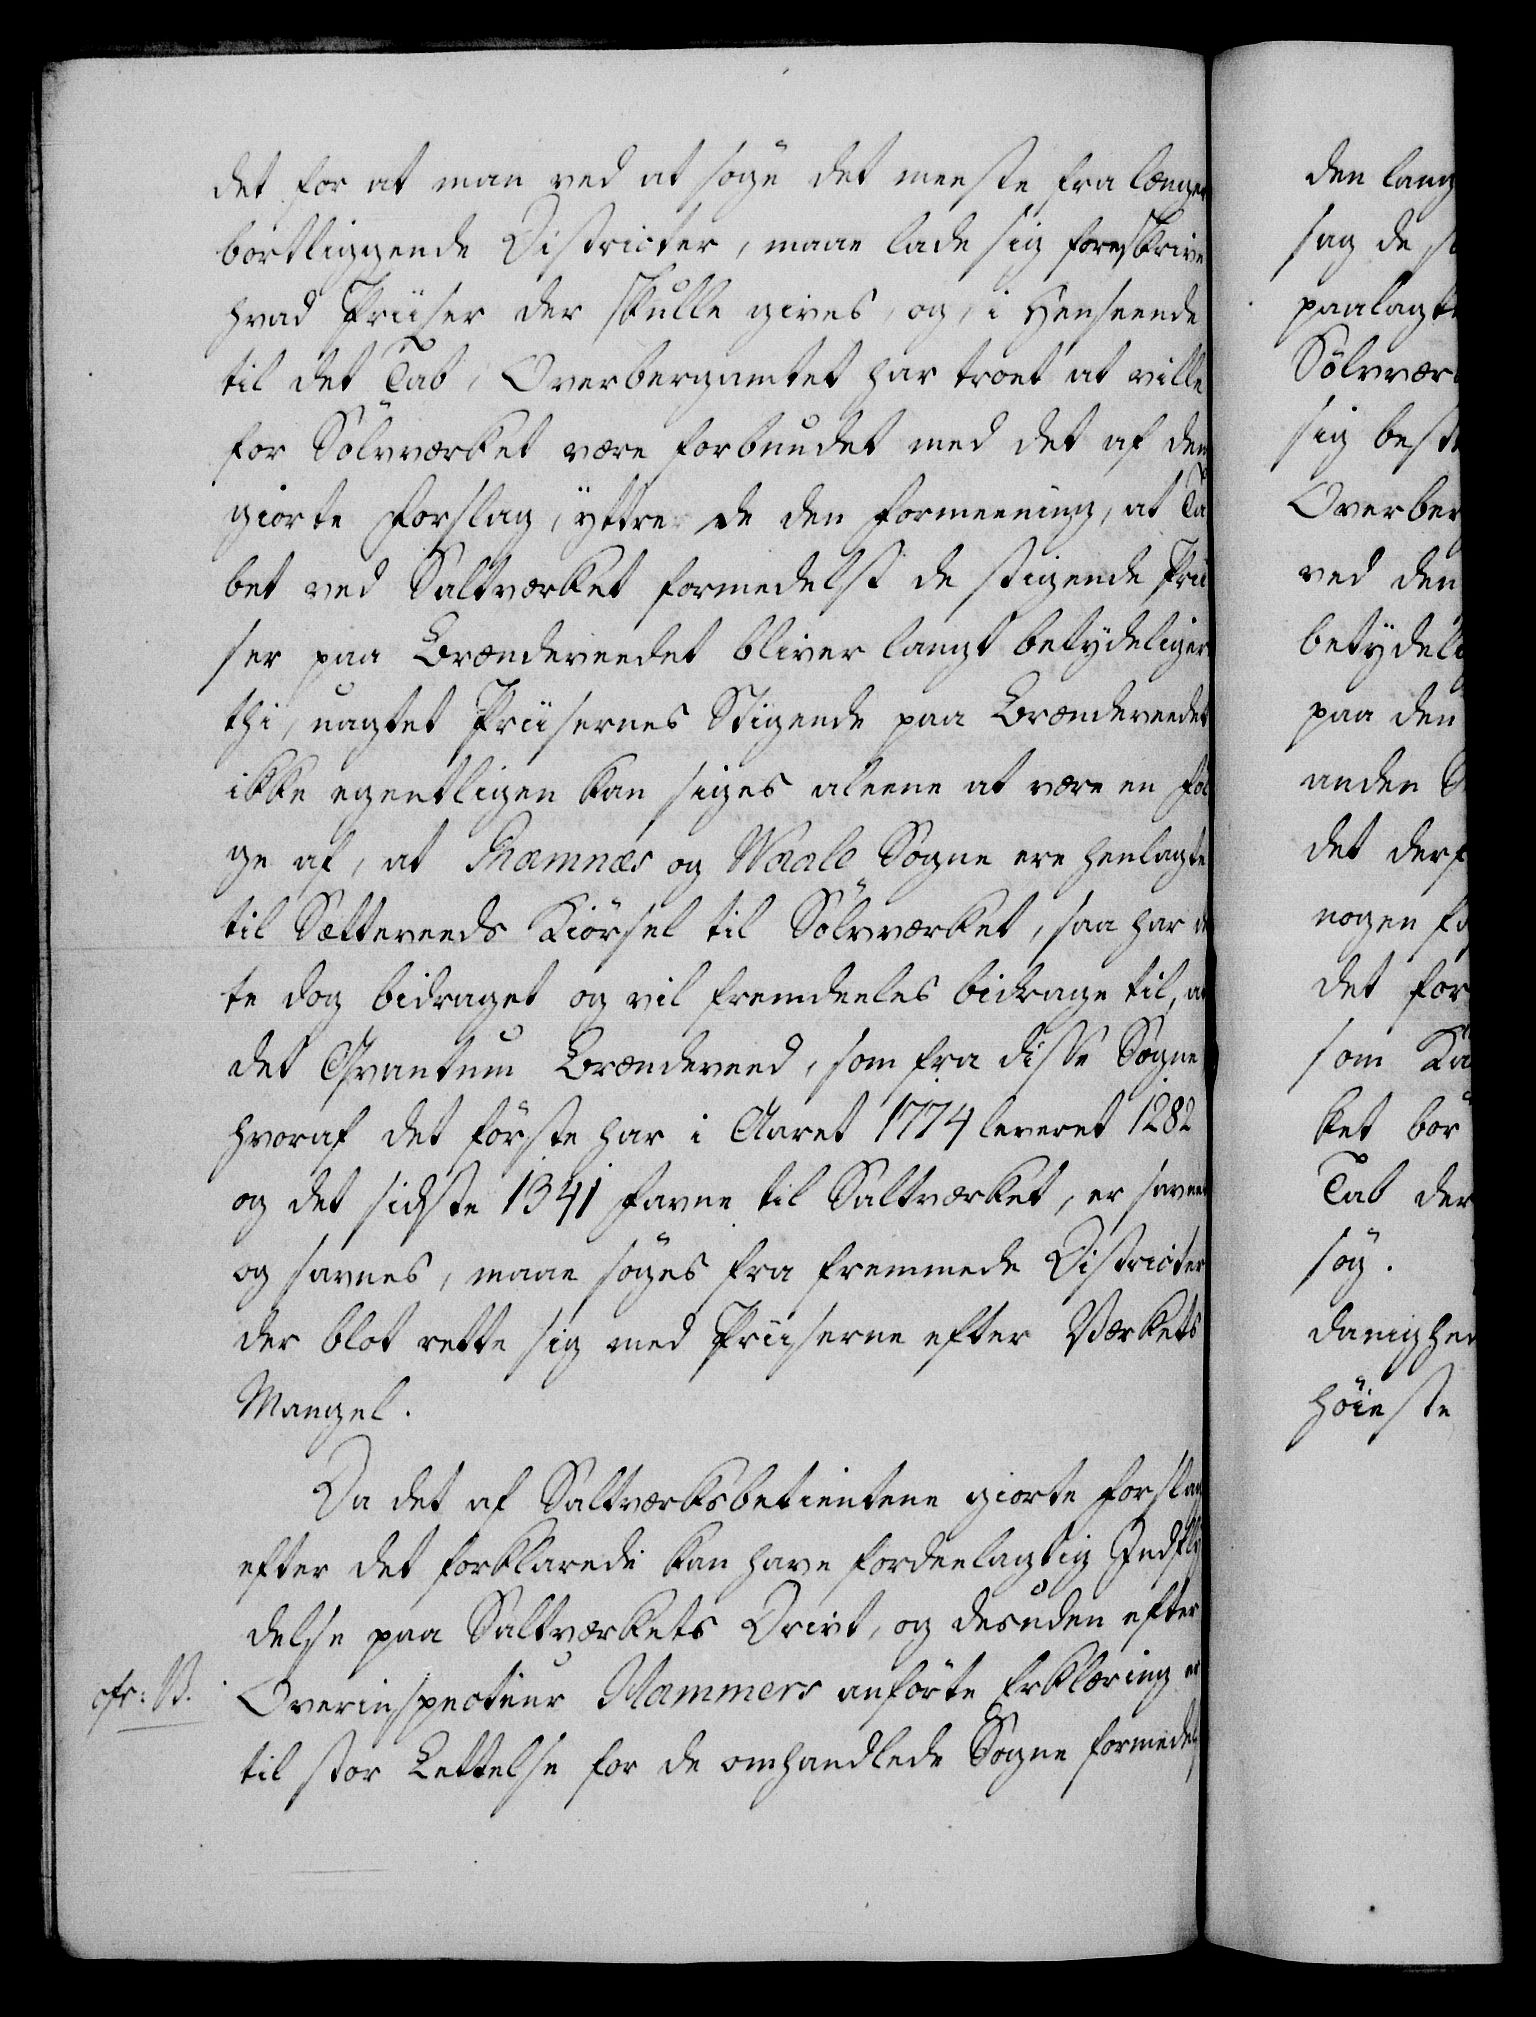 det for at man ved at søge det meeste fra længer
bortliggende Districter, maae lade sig foreskrive
hvad Priiser der skulle gives, og, i Henseende
til det Tab, Overbergamtet har troet at ville
for Sölvværket være forbundet med det af dem
giorte Forslag, yttrer de den Formeening, at Ta
bet ved Saltværket formedelst de stigende Prii
ser paa Brændeveedet bliver langt betydeligere
thi, uagtet Priisernes Stigende paa Brændeveedet
ikke egentligen kan siges aleene at være en Føl
ge af, at Ramnæs og Waale Sogne ere henlagte
til Sætteveeds Kiörsel til Sölvværket, saa har det
te dog bidraget og vil fremdeeles bidrage til, at
det Qvantum Brændeveed, som fra disse Sogne
hvoraf det förste har i Aaret 1774 leveret 1282
og det sidste 1341 Favne til Saltværket, er savnet
og savnes, maae söges fra fremmede Districter
der blot rette sig med Priiserne efter Værkets
Mangel.
Da det af Saltværksbetientene giorte Forslag
efter det forklarede kan have fordeelagtig Indfly
delse paa Saltværkets Drivt, og desuden efter
cfr: B.
Overinspecteur Mammers anförte Erklæring er
til stor Lettelse for de omhandlede Sogne formedelst
den lang
sag de
paalagte
Sölvvær
sig best
Overber
ved den
betydeli
paa den
anden
det derf
nogen
det for
som Ka
ket bör
Tab der
søg.
danighed
höieste